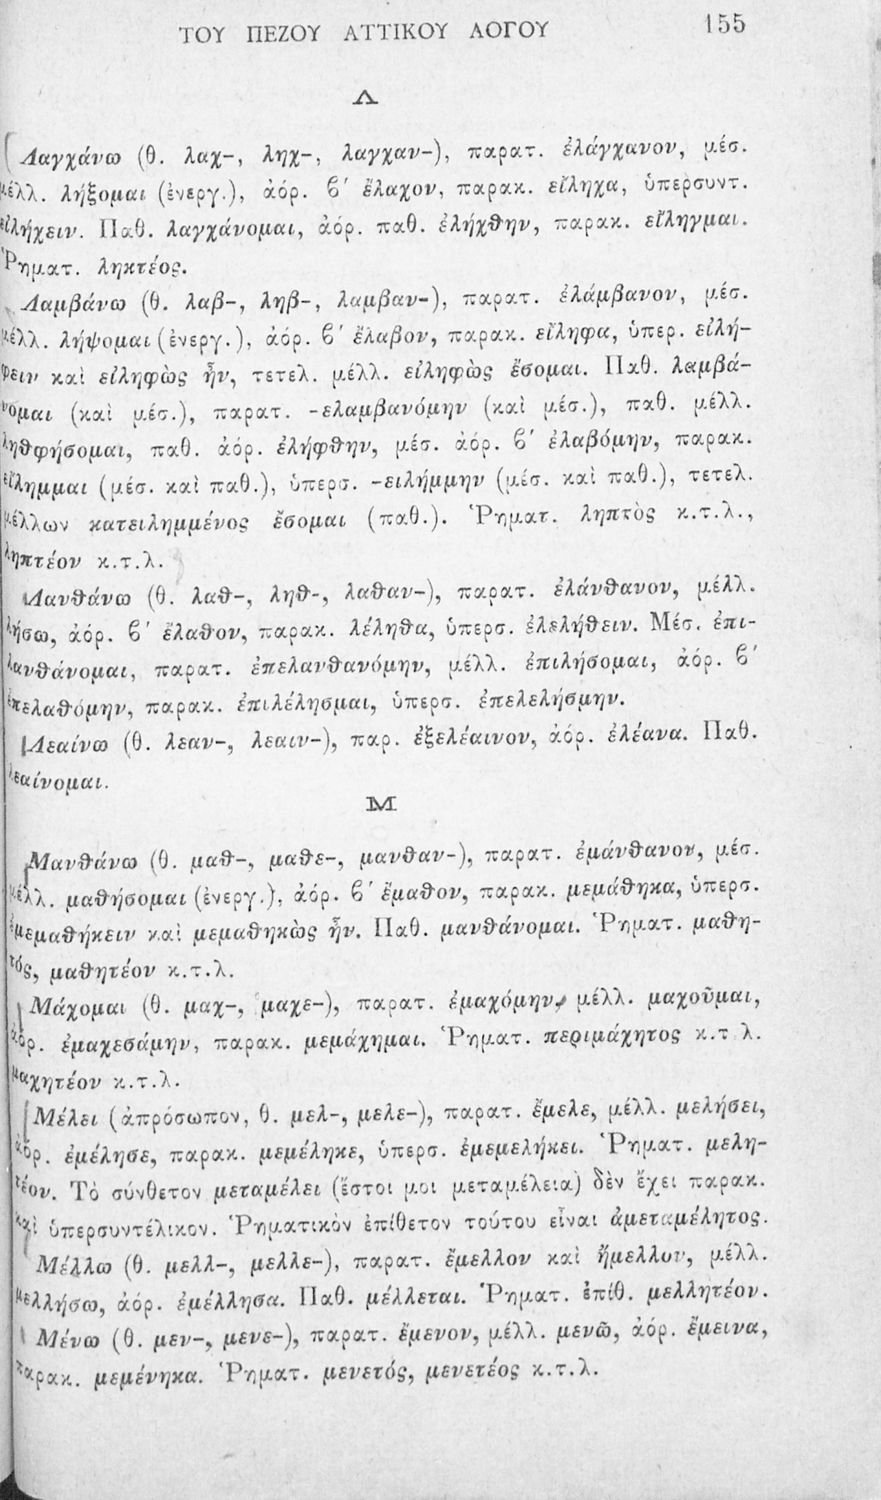 ΤΟΥ ΠΕΖΟΥ ΑΤΤΙΚΟΥ ΛΟΓΟΥ 155
Λ
Λαγχάνω (θ. λαχ-, ληχ-, λαγχαν-), παρατ. ἐλάγχανον, μέσ.
μέλλ. λήξομαι (ἐνεργ.), ἀόρ. β΄ ἔλαχον, παρακ. εἴληχα, ὑπερσυντ.
εἰλήχειν. Παθ. λαγχάνομαι, ἀόρ. παθ. ἐλήχθην, παρακ. εἴληγμαι.
Ῥηματ. ληκτέος.
Λαμβάνω (θ. λαβ-, ληβ-, λαμβαν-), παρατ. ἐλάμβανον, μέσ.
μέλλ. λήψομαι (ἐνεργ.), ἀόρ. β΄ ἔλαβον, παρακ. εἴληφα, ὑπερ. εἰλή-
φειν καὶ εἰληφὼς ἦν, τετελ. μέλλ. εἰληφὼς ἔσομαι. Παθ. λαμβά-
νομαι (καὶ μέσ.), παρατ. -ελαμβανόμην (καὶ μέσ.), παθ. μέλλ.
ληθφήσομαι, παθ. ἀόρ. ἐλήφθην, μέσ. ἀόρ. β΄ ἐλαβόμην, παρακ.
εἴλημμαι (μέσ. καὶ παθ.), ὑπερσ. -ειλήμμην (μέσ. καὶ παθ.), τετελ.
μέλλων κατειλημμένος ἔσομαι (παθ.). Ῥηματ. ληπτὸς κ.τ.λ.,
ληπτέον κ.τ.λ.
Λανθάνω (θ. λαθ-, ληθ-, λαθαν-), παρατ. ἐλάνθανον, μέλλ.
λήσω, ἀόρ. β΄ ἔλαθον, παρακ. λέληθα, ὑπερσ. ἐλελήθειν. Μέσ. ἐπι-
λανθάνομαι, παρατ. ἐπελανθανόμην, μέλλ. ἐπιλήσομαι, ἀόρ. β΄
ἐπελαθόμην, παρακ. ἐπιλέλησμαι, ὑπερσ. ἐπελελήσμην.
Λεαίνω (θ. λεαν-, λεαιν-), παρ. ἐξελέαινον, ἀόρ. ἐλέανα. Παθ.
λεαίνομαι.
Μ
Μανθάνω (θ. μαθ-, μαθε-, μανθαν-), παρατ. ἐμάνθανον, μέσ.
μέλλ. μαθήσομαι (ἐνεργ.), ἀόρ. β΄ ἔμαθον, παρακ. μεμάθηκα, ὑπερσ.
ἐμεμαθήκειν καὶ μεμαθηκὼς ἦν. Παθ. μανθάνομαι. Ῥηματ. μαθη-
τός, μαθητέον κ.τ.λ.
Μάχομαι (θ. μαχ-, μαχε-), παρατ. ἐμαχόμην, μέλλ. μαχοῦμαι,
ἀόρ. ἐμαχεσάμην, παρακ. μεμάχημαι. Ῥηματ. περιμάχητος κ.τ.λ.
μαχητέον κ.τ.λ.
Μέλει (ἀπρόσωπον, θ. μελ-, μελε-), παρατ. ἔμελε, μέλλ. μελήσει,
ἀόρ. ἐμέλησε, παρακ. μεμέληκε, ὑπερσ. ἐμεμελήκει. Ῥηματ. μελη-
τέον. Τὸ σύνθετον μεταμέλει (ἔστοι μοι μεταμέλεια) δὲν ἔχει παρακ.
καὶ ὑπερσυντέλικον. Ῥηματικὸν ἐπίθετον τούτου εἶναι ἀμεταμέλητος.
Μέλλω (θ. μελλ-, μελλε-), παρατ. ἔμελλον καὶ ἤμελλον, μέλλ.
μελλήσω, ἀόρ. ἐμέλλησα. Παθ. μέλλεται. Ῥηματ. ἐπίθ. μελλητέον.
Μένω (θ. μεν-, μενε-), παρατ. ἔμενον, μέλλ. μενῶ, ἀόρ. ἔμεινα,
παρακ. μεμένηκα. Ῥηματ. μενετός, μενετέος κ.τ.λ.